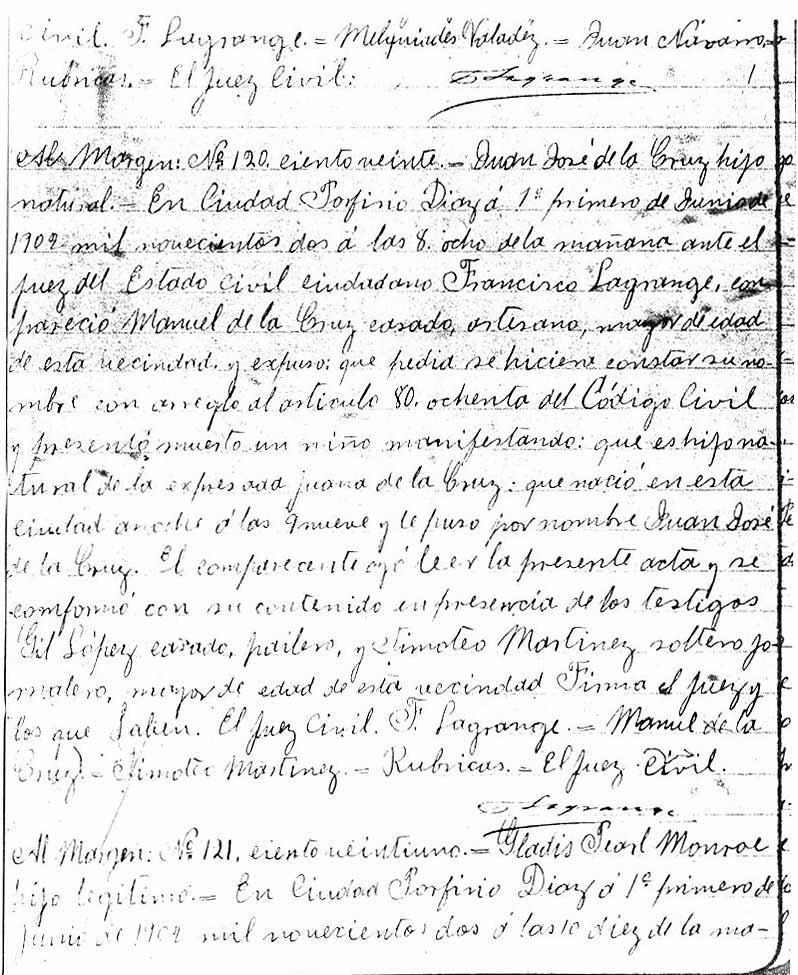 Civil. F. Lagrange. = Melquiades Valadéz. = Juan Navarro
Rubricas. = El Juez Civil: F Lagrange.
Al Margen: No. 120. ciento veinte. = Juan José de la Cruz hijo
natural. = En Ciudad Porfirio Diaz á 1º primero de Junio de
1902 mil novecientos dos á las 8. ocho de la mañana ante el
juez del Estado Civil ciudadano Francisco Lagrange, com
pareció Manuel de la Cruz casado, artesano, mayor de edad
de esta vecindad. y expuso: que pedia se hiciera constar su no-
mbre con arreglo al articulo 80. ochenta del Código Civil
y presentó muerto un niño manifestando: que es hijo na-
tural de la expresada Juana de la Cruz: que nació en esta
ciudad anoche á las 9 nueve y le puso por nombre Juan José
de la Cruz. El compareciente oyó leer la presente acta y se
comformó con su contenido en presencia de los testigos
Gil López casado, pailero, y Timoteo Martinez soltero jor
nalero, mayor de edad de esta vecindad Firma el juez y
los que saben. El Juez Civil. F. Lagrange. = Manuel de la
Cruz = Timoteo Martinez. = Rubricas. = El Juez Civil.
F Lagrange
Al Margen: No. 121. ciento veintiuno. = Gladis Pearl Monroe
hijo legitimo. = En Ciudad Porfirio Diaz á 1º primero de
Junio de 1902 mil novecientos dos á las 10 diez de la ma-